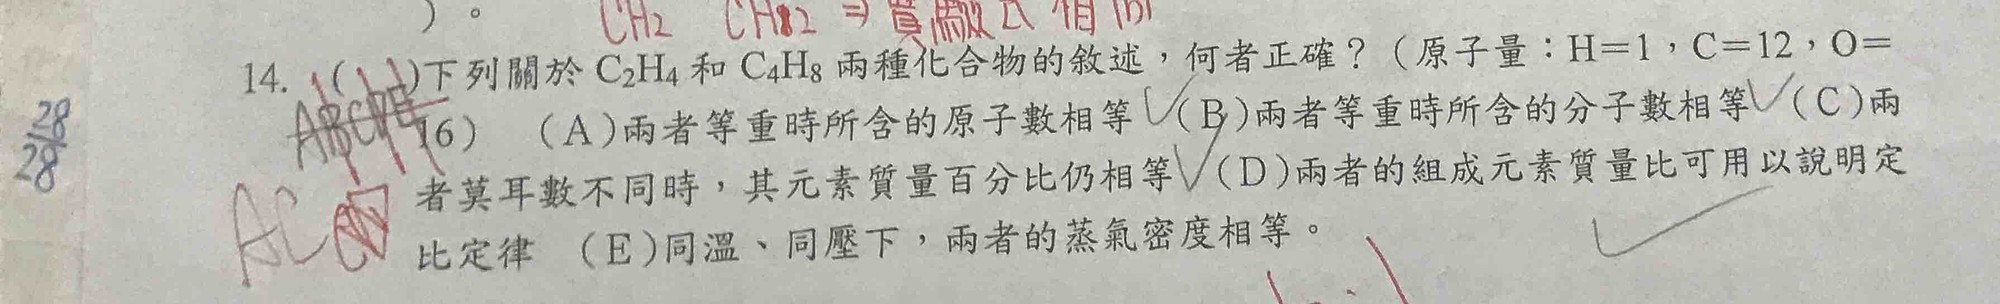 )。 CH2 CH2 ⇒ 實驗式相同
14. ( )下列關於 C₂H₄ 和 C₄H₈ 兩種化合物的敘述，何者正確？（原子量：H＝1，C＝12，O＝
ABCDE 16） （A）兩者等重時所含的原子數相等 （B）兩者等重時所含的分子數相等 （C）兩
28
28
者莫耳數不同時，其元素質量百分比仍相等 （D）兩者的組成元素質量比可用以說明定
AC
比定律 （E）同溫、同壓下，兩者的蒸氣密度相等。